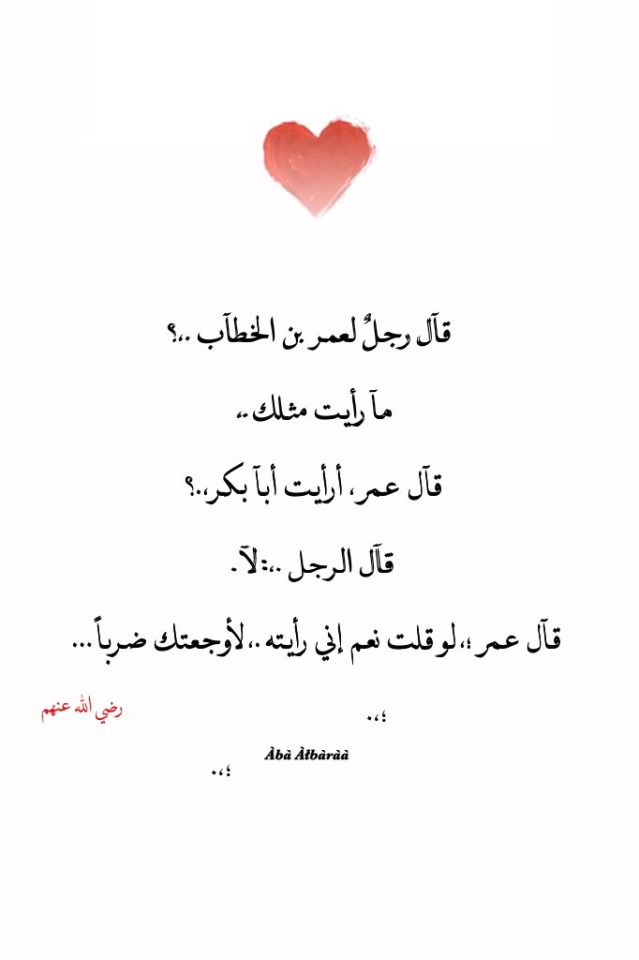 قآل رجلٌ لعمر بن الخطآب .،؟
مآ رأيت مثلك .،
قآل عمر، أرأيت أبآ بكر،.؟
قآل الرجل .،:لآ.
قآل عمر ؛،لو قلت نعم إني رأيته .،لأوجعتك ضرباً...
؛،.
رضي الله عنهم
Àbà Àłbàràà
؛،.